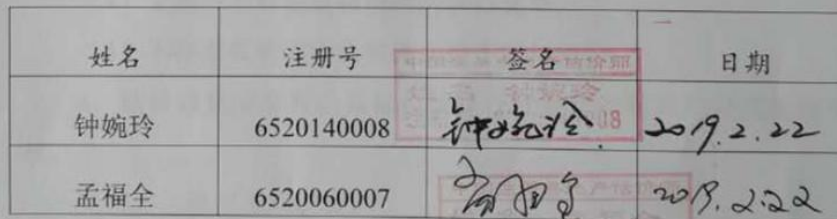 姓名 注册号 签名 日期
钟婉玲 6520140008 钟婉玲 2019.2.22
孟福全 6520060007 2019.2.22